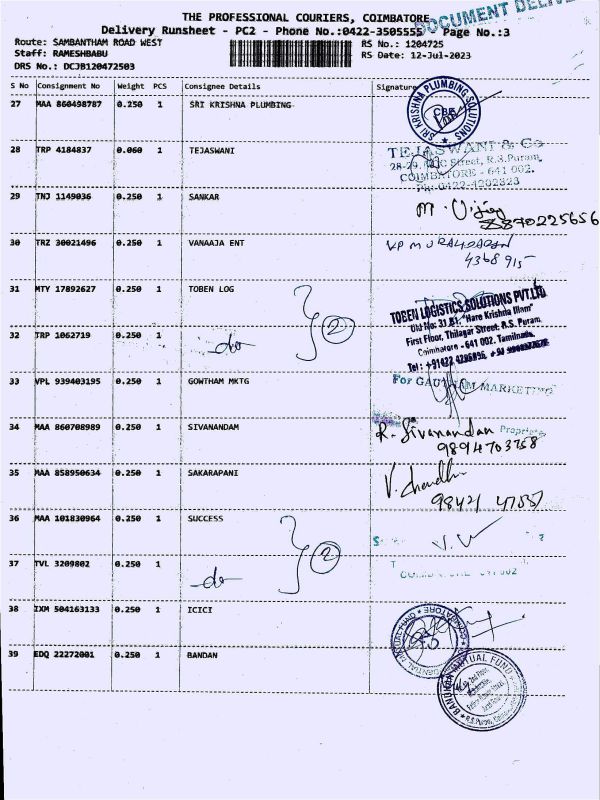 THE PROFESSIONAL COURIERS, COIMBATORE
DOCUMENT
Delivery Runsheet - PC2 - Phone No.:0422-3505555 - Page No.:3
Route: SAMBANTHAM ROAD WEST
RS No.: 1204725
Staff: RAMESHBABU
RS Date: 12-Jul-2023
DRS No.: DCJB120472503
S No Consignment No Weight PCS Consignee Details Signature
27 MAA 860498787 0.250 1 SRI KRISHNA PLUMBING
SRI KRISHNA PLUMBING SOLUTIONS
CBE
28 TRP 4184837 0.060 1 TEJASWANI
TEJASWANI & Co
Street, R.S.Puram,
COIMBATORE - 641 002.
Ph: 0422-4202323
29 TNJ 1149036 0.250 1 SANKAR
M. Vijay
8870225656
30 TRZ 30021496 0.250 1 VANAAJA ENT
VP MURALIDARAN
4368915
31 MTY 17892627 0.250 1 TOBEN LOG
2
TOBEN LOGISTICS SOLUTIONS PVT.LTD
Old No: 31 B1, "Hare Krishna Illam"
First Floor, Thilagar Street, R.S. Puram,
Coimbatore - 641 002. Tamilnadu,
32 TRP 1062719 0.250 1
-do-
33 VPL 939403195 0.250 1 GOWTHAM MKTG
For GAUTHAM MARKETING
Proprietor
34 MAA 860708989 0.250 1 SIVANANDAM
R. Sivanandan
9894703758
35 MAA 858950634 0.250 1 SAKARAPANI
V. Chendhu
36 MAA 101830964 0.250 1 SUCCESS
2
37 TVL 3209802 0.250 1
-do-
38 IXM 504163133 0.250 1 ICICI
39 EDQ 22272001 0.250 1 BANDAN
MUTUAL FUND